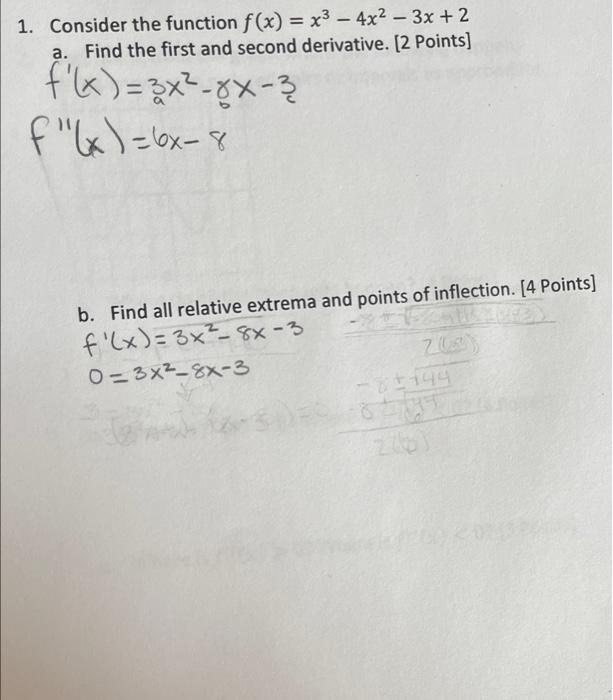 1. Consider the function f(x) = x³ − 4x² − 3x + 2
a. Find the first and second derivative. [2 Points]
f'(x) = 3x² - 8x - 3
a b c
f''(x) = 6x - 8
b. Find all relative extrema and points of inflection. [4 Points]
f'(x) = 3x² - 8x - 3
0 = 3x² - 8x - 3
-8 ± √144